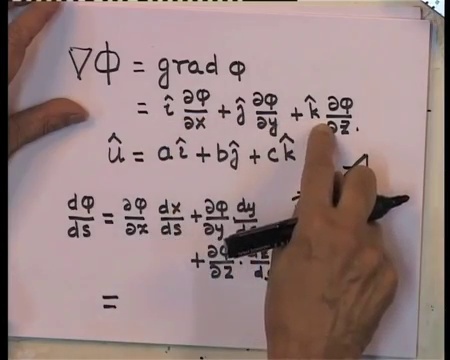 ∇Φ = grad φ
= î ∂φ/∂x + ĵ ∂φ/∂y + k̂ ∂φ/∂z.
û = aî + bĵ + ck̂
dφ/ds = ∂φ/∂x dx/ds + ∂φ/∂y dy/
+ ∂φ/∂z ·
=